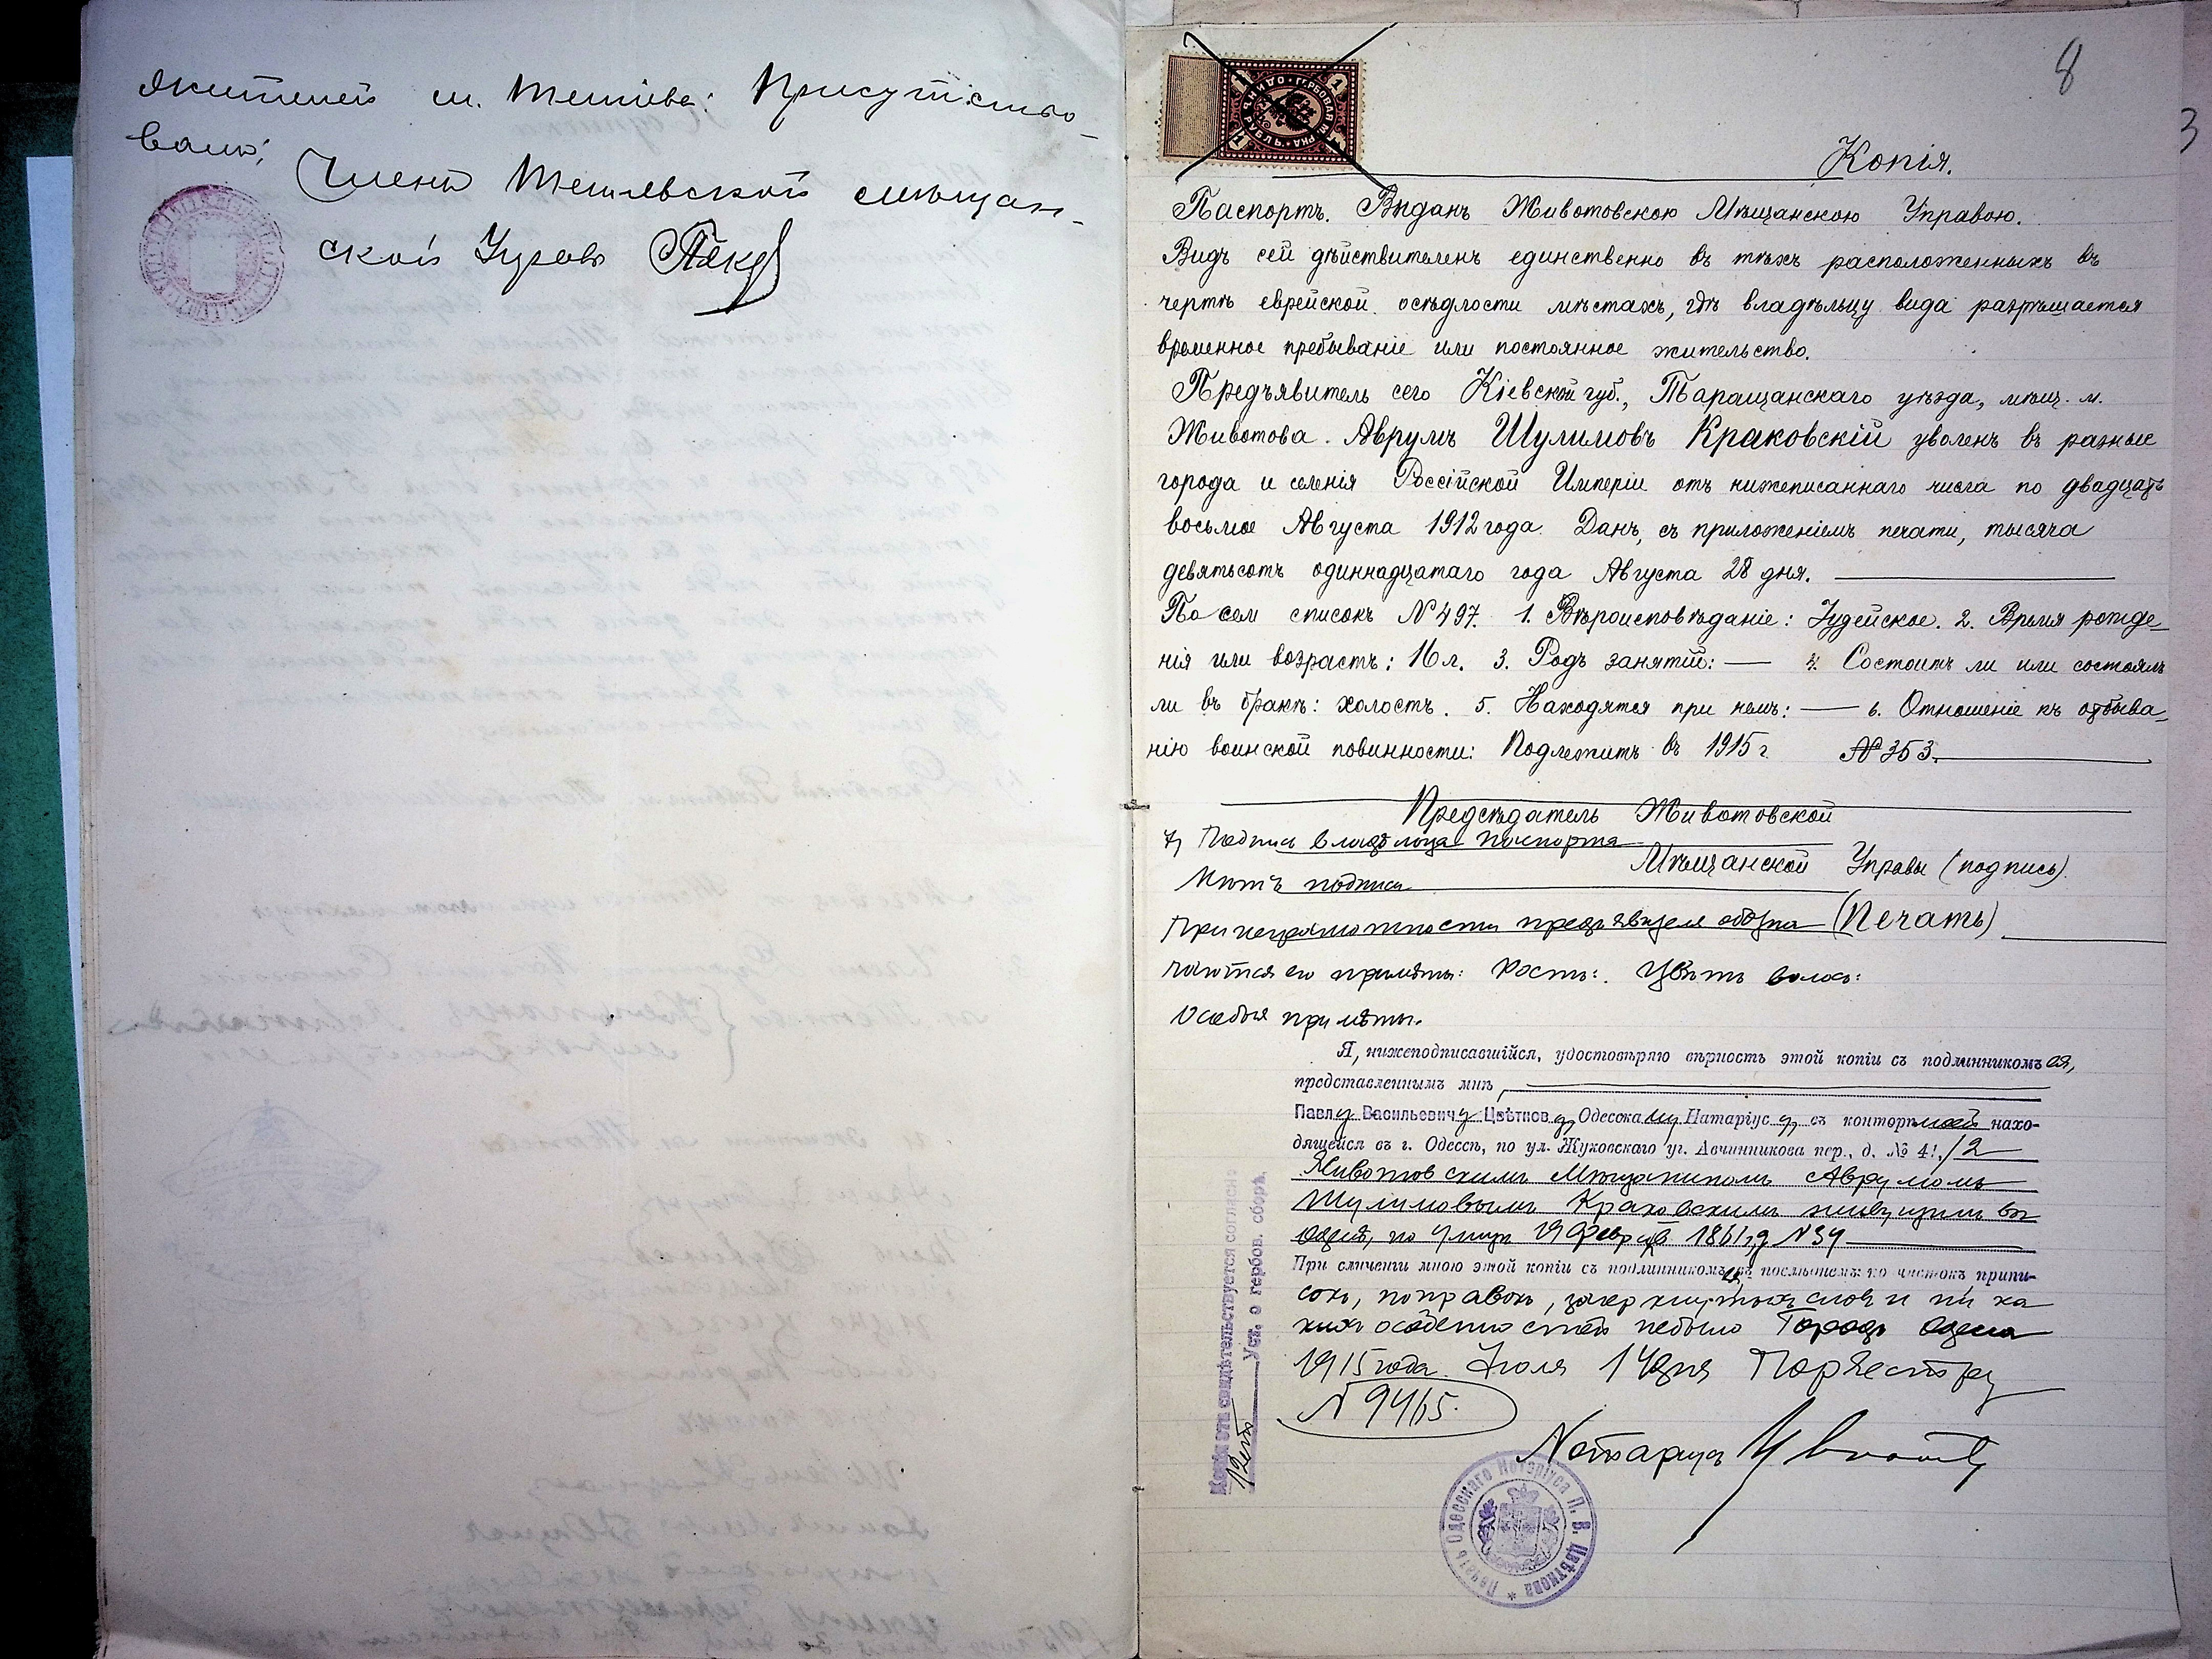 жителей м. Тетіева: Присутство-
вали:
Членъ Тетіевской мѣщан-
ской Управы
8
3
Копія.
Паспортъ. Выданъ Животовскою Мѣщанскою Управою.
Видъ сей дѣйствителенъ единственно въ тѣхъ расположенныхъ въ
чертѣ еврейской осѣдлости мѣстахъ, гдѣ владѣльцу вида разрѣшается
временное пребываніе или постоянное жительство.
Предъявитель сего Кіевской губ., Таращанскаго уѣзда, мѣщ. м.
Животова. Аврумъ Шулимовъ Краковскій уволенъ въ разные
города и селенія Россійской Имперіи отъ нижеписаннаго числа по двадцать
восьмое Августа 1912 года. Данъ, съ приложеніемъ печати, тысяча
девятьсотъ одиннадцатаго года Августа 28 дня.
По сем списокъ № 497. 1. Вѣроисповѣданіе: Іудейское. 2. Время рожде-
нія или возрастъ: 16 л. 3. Родъ занятій: — 4. Состоитъ ли или состоялъ
ли въ бракѣ: холостъ. 5. Находятся при немъ: — 6. Отношеніе къ отбыва-
нію воинской повинности: Подлежитъ въ 1915 г. № 353.
Предсѣдатель Животовской
7, Подпись владѣльца паспорта
Мѣщанской Управы (подпись).
подписи
При неграмотности предъявителя обозна (Печать)
чаются его примѣты: Ростъ: Цвѣтъ волосъ:
Особыя примѣты.
Я, нижеподписавшійся, удостовѣряю вѣрность этой копіи съ подлинникомъ ея,
представленнымъ мнѣ,
Павлу Васильевичу Цвѣткову, Одесскому Нотаріусу, въ конторѣ моей нахо-
дящейся въ г. Одессѣ, по ул. Жуковскаго уг. Авчинникова пер., д. № 41/2
Животовскимъ Мѣщаниномъ Аврумомъ
Шулимовымъ Краковскимъ живущимъ въ
Одессѣ, по улицѣ 19 Февраля 1861 г., № 34
При сличеніи мною этой копіи съ подлинникомъ въ послѣднемъ по чистокъ припи-
сокъ, поправокъ, зачеркнутыхъ словъ и ни ка
кихъ особенностей небыло Городъ Одесса
1915 года Іюля 14 дня По реестру
№ 9415.
Нотаріусъ Цвѣтковъ
Уст. о гербов. сборѣ.
Печать Одесскаго Нотаріуса П. В. Цвѣткова